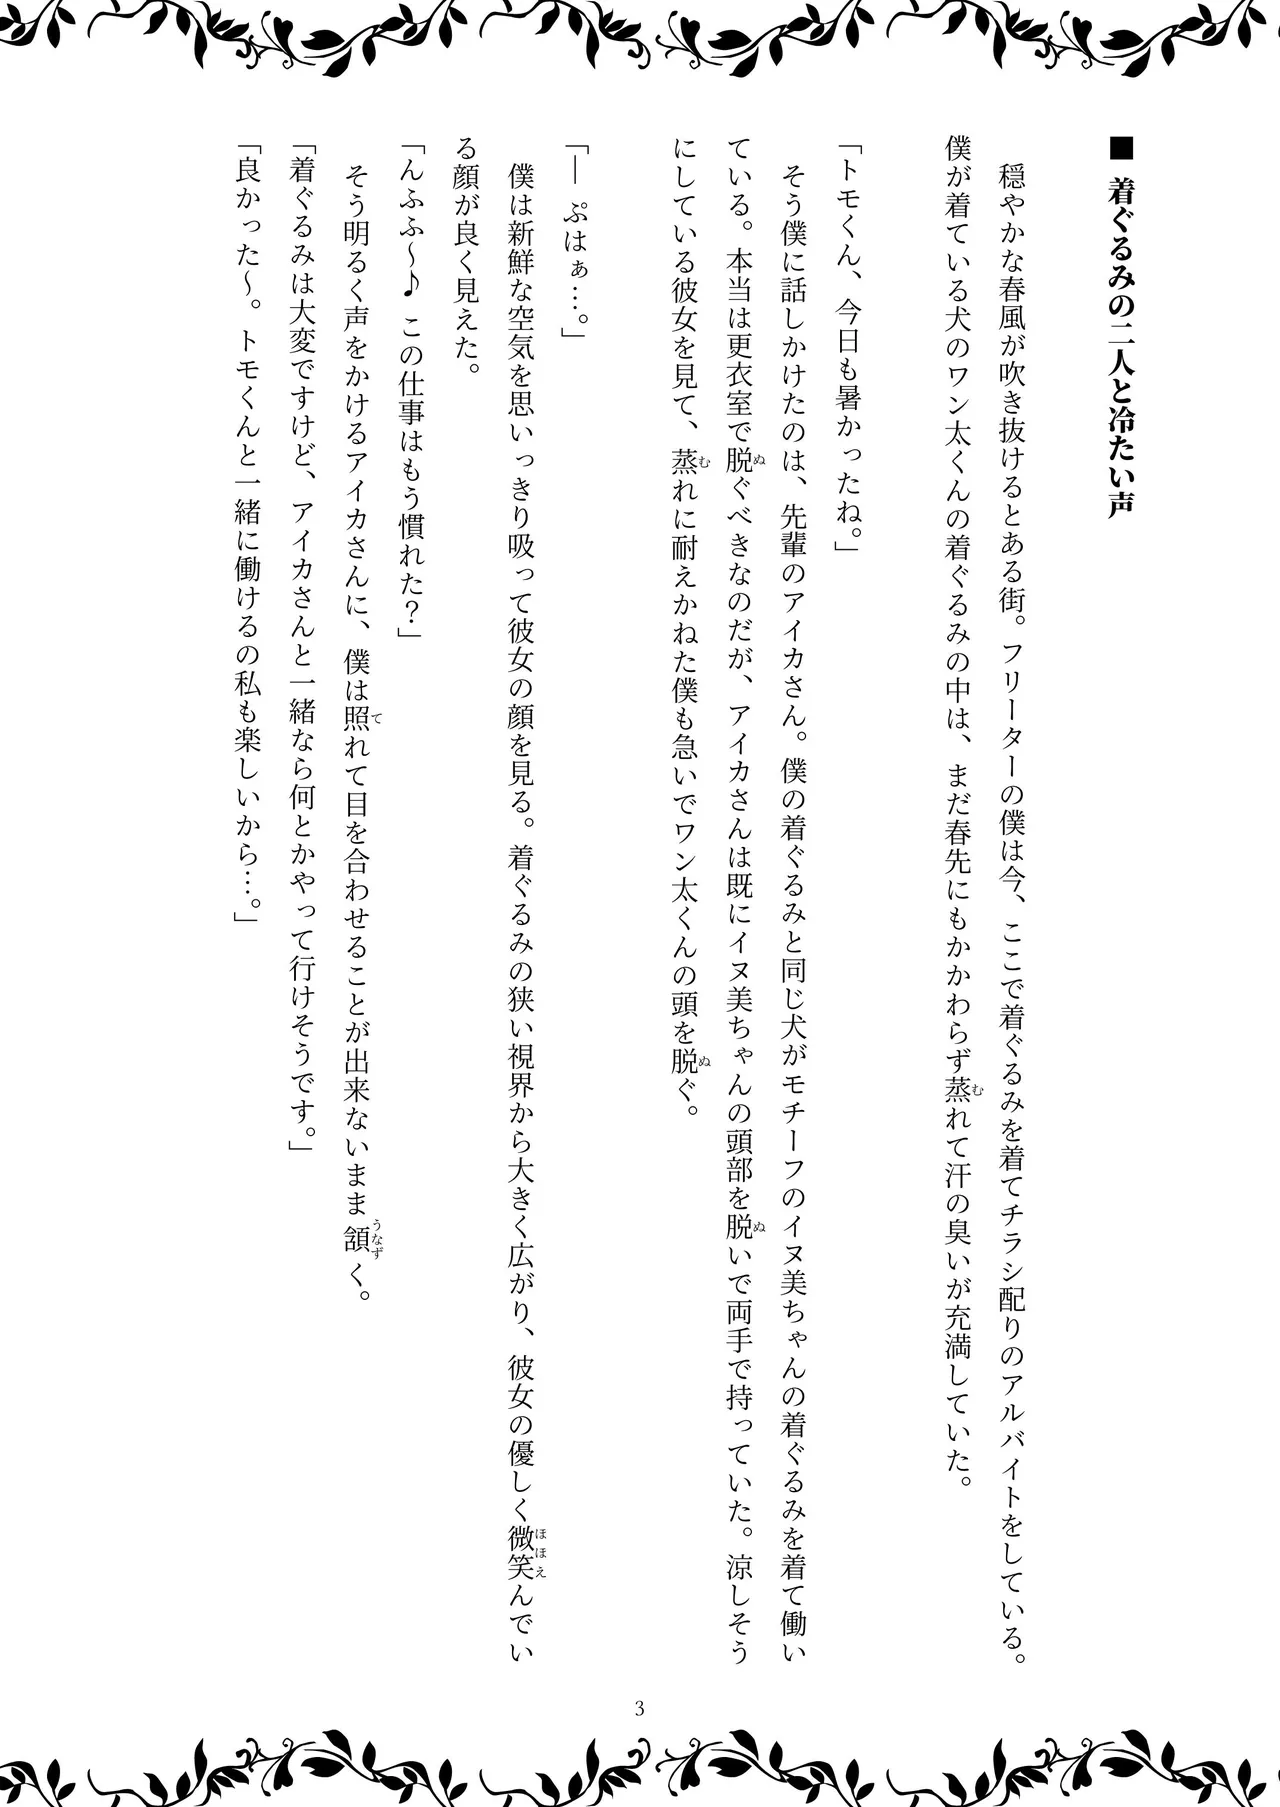 ■ 着ぐるみの二人と冷たい声
穏やかな春風が吹き抜けるとある街。フリーターの僕は今、ここで着ぐるみを着てチラシ配りのアルバイトをしている。
僕が着ている犬のワン太くんの着ぐるみの中は、まだ春先にもかかわらず蒸れて汗の臭いが充満していた。
「トモくん、今日も暑かったね。」
そう僕に話しかけたのは、先輩のアイカさん。僕の着ぐるみと同じ犬がモチーフのイヌ美ちゃんの着ぐるみを着て働い
ている。本当は更衣室で脱ぐべきなのだが、アイカさんは既にイヌ美ちゃんの頭部を脱いで両手で持っていた。涼しそう
にしている彼女を見て、蒸れに耐えかねた僕も急いでワン太くんの頭を脱ぐ。
「― ぷはぁ…。」
僕は新鮮な空気を思いっきり吸って彼女の顔を見る。着ぐるみの狭い視界から大きく広がり、彼女の優しく微笑んでい
る顔が良く見えた。
「んふふ～♪ この仕事はもう慣れた？」
そう明るく声をかけるアイカさんに、僕は照れて目を合わせることが出来ないまま頷く。
「着ぐるみは大変ですけど、アイカさんと一緒なら何とかやって行けそうです。」
「良かった～。トモくんと一緒に働けるの私も楽しいから…。」
3